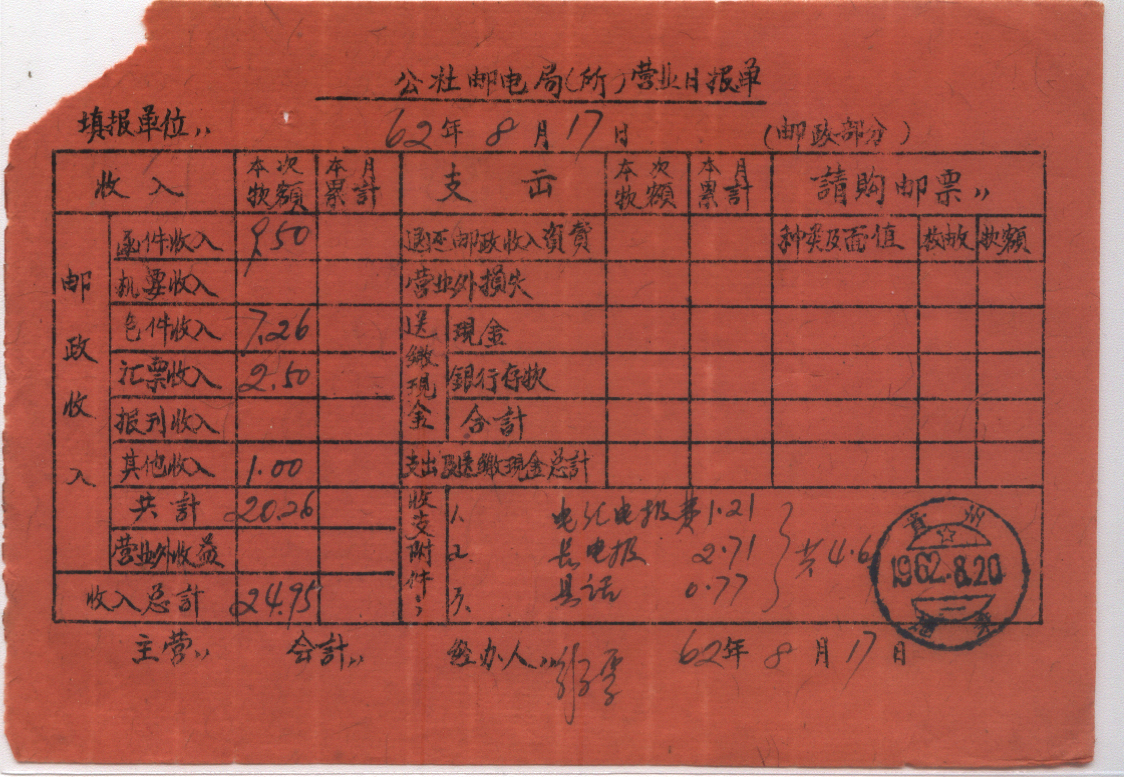 公社邮电局(所)营业日报单
填报单位,, 62年8月17日 (邮政部分)
收入 本次款额 本月累計 支出 本次款额 本月累計 請购邮票,,
邮政收入 函件收入 9.50 退还邮政收入资費 种类及面值 枚数 款额
机要收入 营业外損失
包件收入 7.26 送繳現金 現金
汇票收入 2.50 銀行存款
报刊收入 合計
其他收入 1.00 支出及送繳現金总計
共計 20.26 收支附件,, 1. 电汇电报费 1.21
营业外收益 2. 長电报 2.71 共4.6
收入总計 24.95 3. 長话 0.77
貴州
1962.8.20
主营,, 会計,, 経办人,, 62年8月17日